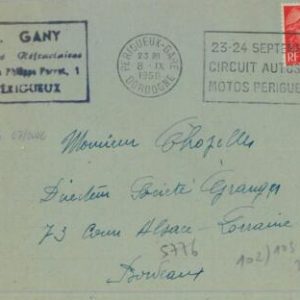 . GANY
Réfractaires
Philippe Parrot, 1
PÉRIGUEUX
PÉRIGUEUX-GARE
23 H
8 - IX
1950
DORDOGNE
23-24 SEPTE
CIRCUIT AUTOS
MOTOS PERIGUE
Monsieur Chazelles
Directeur Société Granger
73 Cours Alsace-Lorraine
5776
102/103
Bordeaux